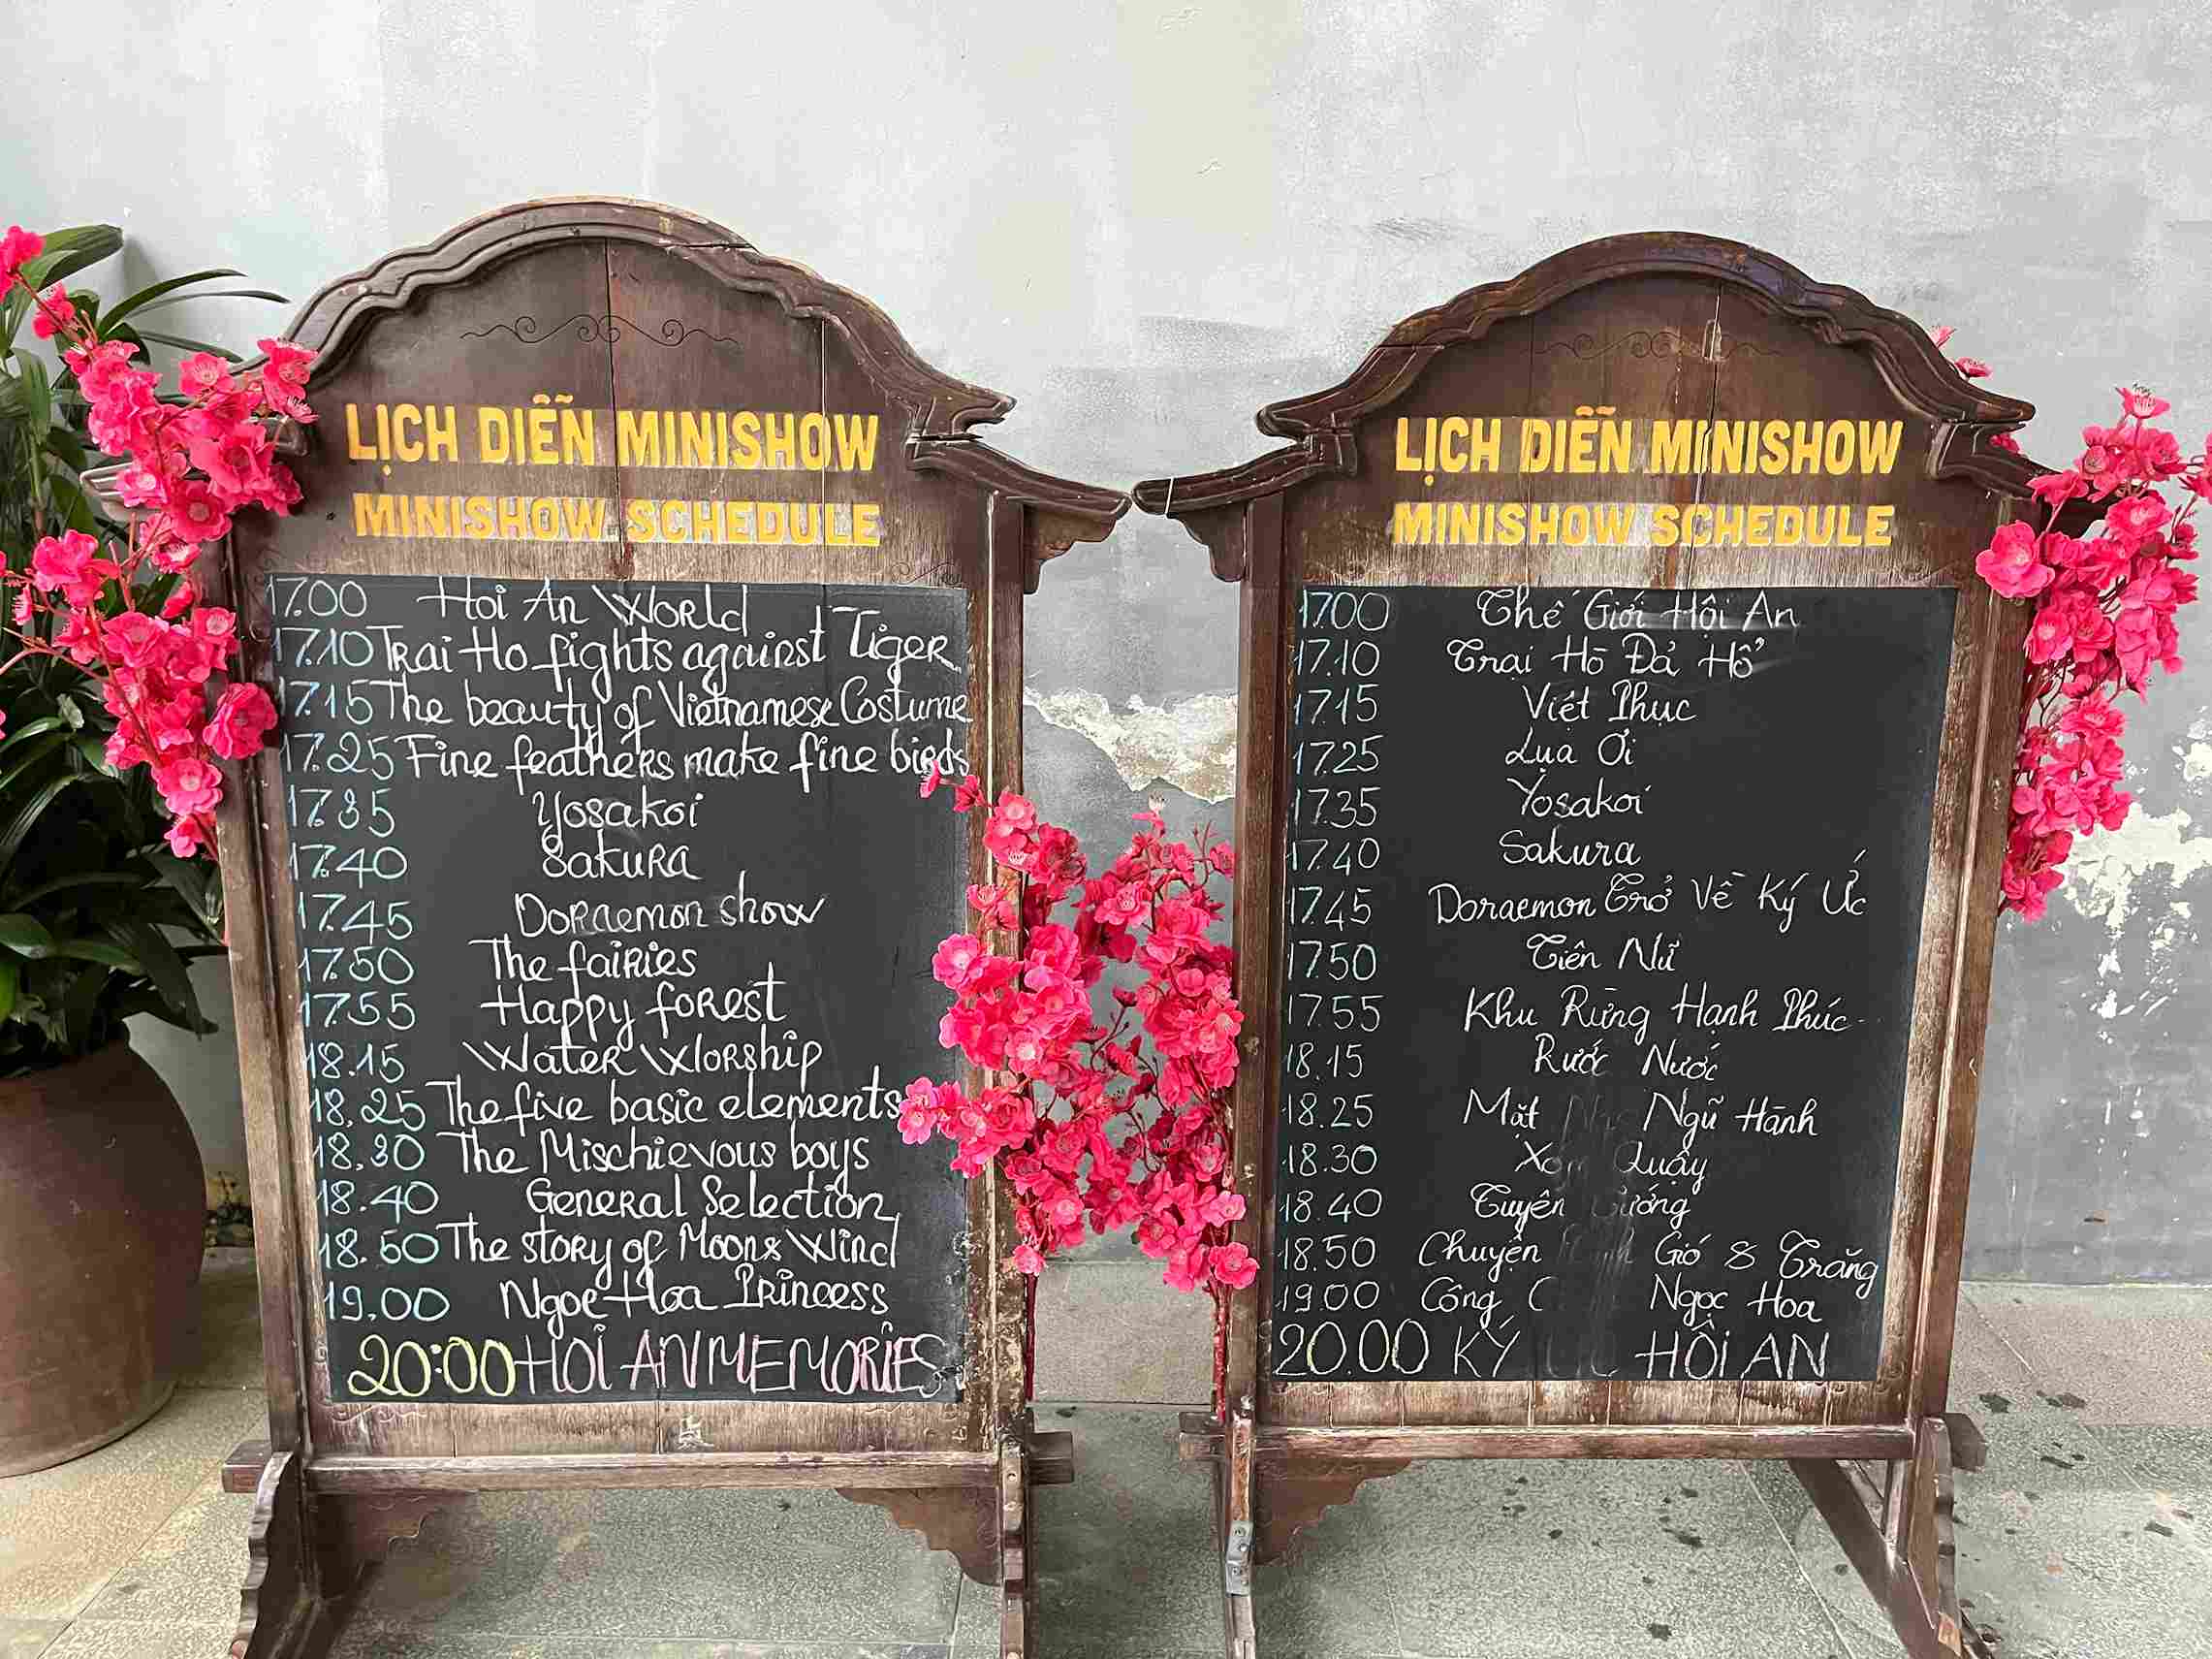 LỊCH DIỄN MINISHOW
MINISHOW SCHEDULE
17.00 Hoi An World
17.10 Trai Ho fights against Tiger
17.15 The beauty of Vietnamese Costume
17.25 Fine feathers make fine birds
17.35 Yosakoi
17.40 Sakura
17.45 Doraemon show
17.50 The fairies
17.55 Happy forest
18.15 Water Worship
18.25 The five basic elements
18.30 The Mischievous boys
18.40 General Selection
18.50 The story of Moon & Wind
19.00 Ngoc Hoa Princess
20:00 HOI AN MEMORIES
LỊCH DIỄN MINISHOW
MINISHOW SCHEDULE
17.00 Thế Giới Hội An
17.10 Trại Hồ Đả Hổ
17.15 Việt Phục
17.25 Lụa Ơi
17.35 Yosakoi
17.40 Sakura
17.45 Doraemon Trở Về Ký Ức
17.50 Tiên Nữ
17.55 Khu Rừng Hạnh Phúc
18.15 Rước Nước
18.25 Mặt Ngũ Hành
18.30 Quậy
18.40 Tuyên
18.50 Chuyện Gió & Trăng
19.00 Công Ngọc Hoa
20.00 KÝ HỘI AN